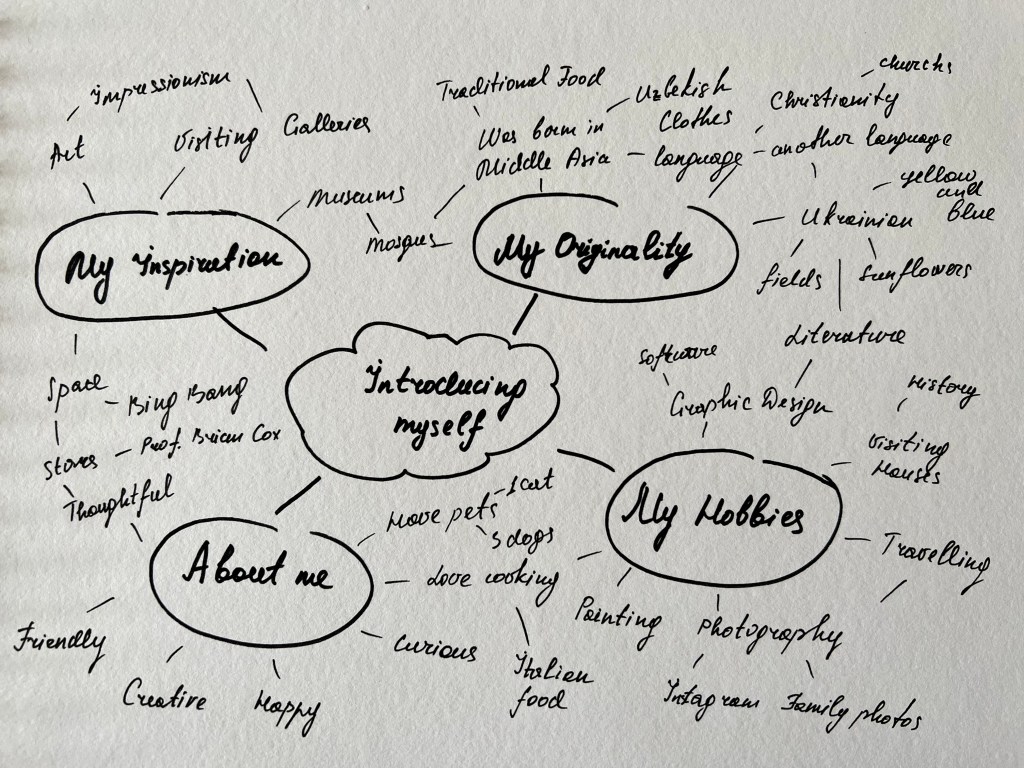 Impressionism
Art
Visiting Galleries
Museums
mosques
My Inspiration
Traditional Food
Uzbekish
Clothes
Was born in
Middle Asia
language
another language
Christianity
churchs
yellow
and
blue
Ukrainian
fields
sunflowers
Literature
My Originality
Introducing
myself
Space
Bing Bang
Stars
Prof. Brian Cox
Thoughtful
About me
Have pets
1 cat
3 dogs
Love cooking
Italian
food
Curious
Happy
Creative
Friendly
software
Graphic Design
History
Visiting
Houses
My Hobbies
Travelling
Painting
Photography
Intagram
Family photos